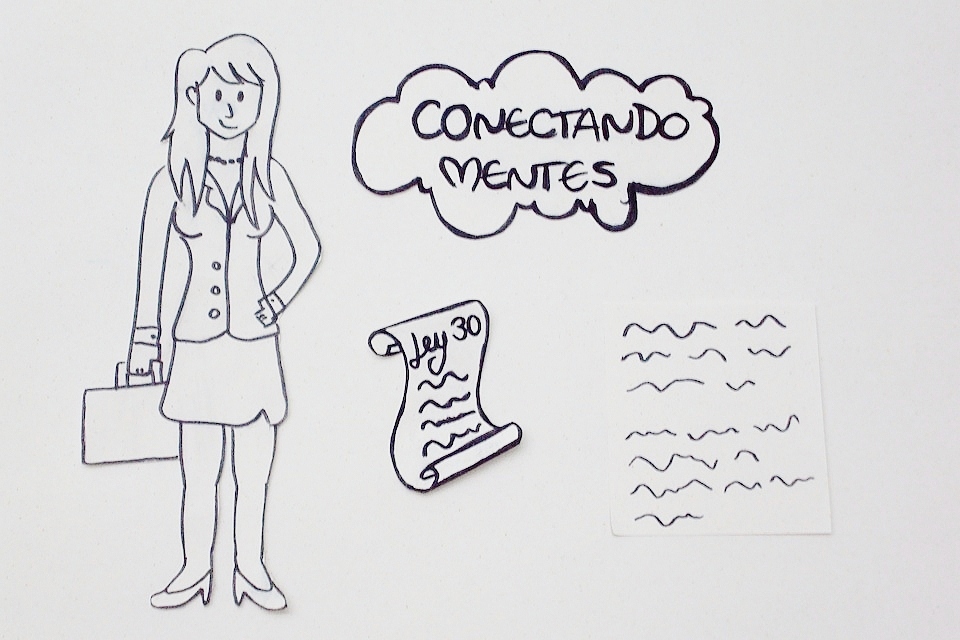 CONECTANDO
MENTES
Ley 30